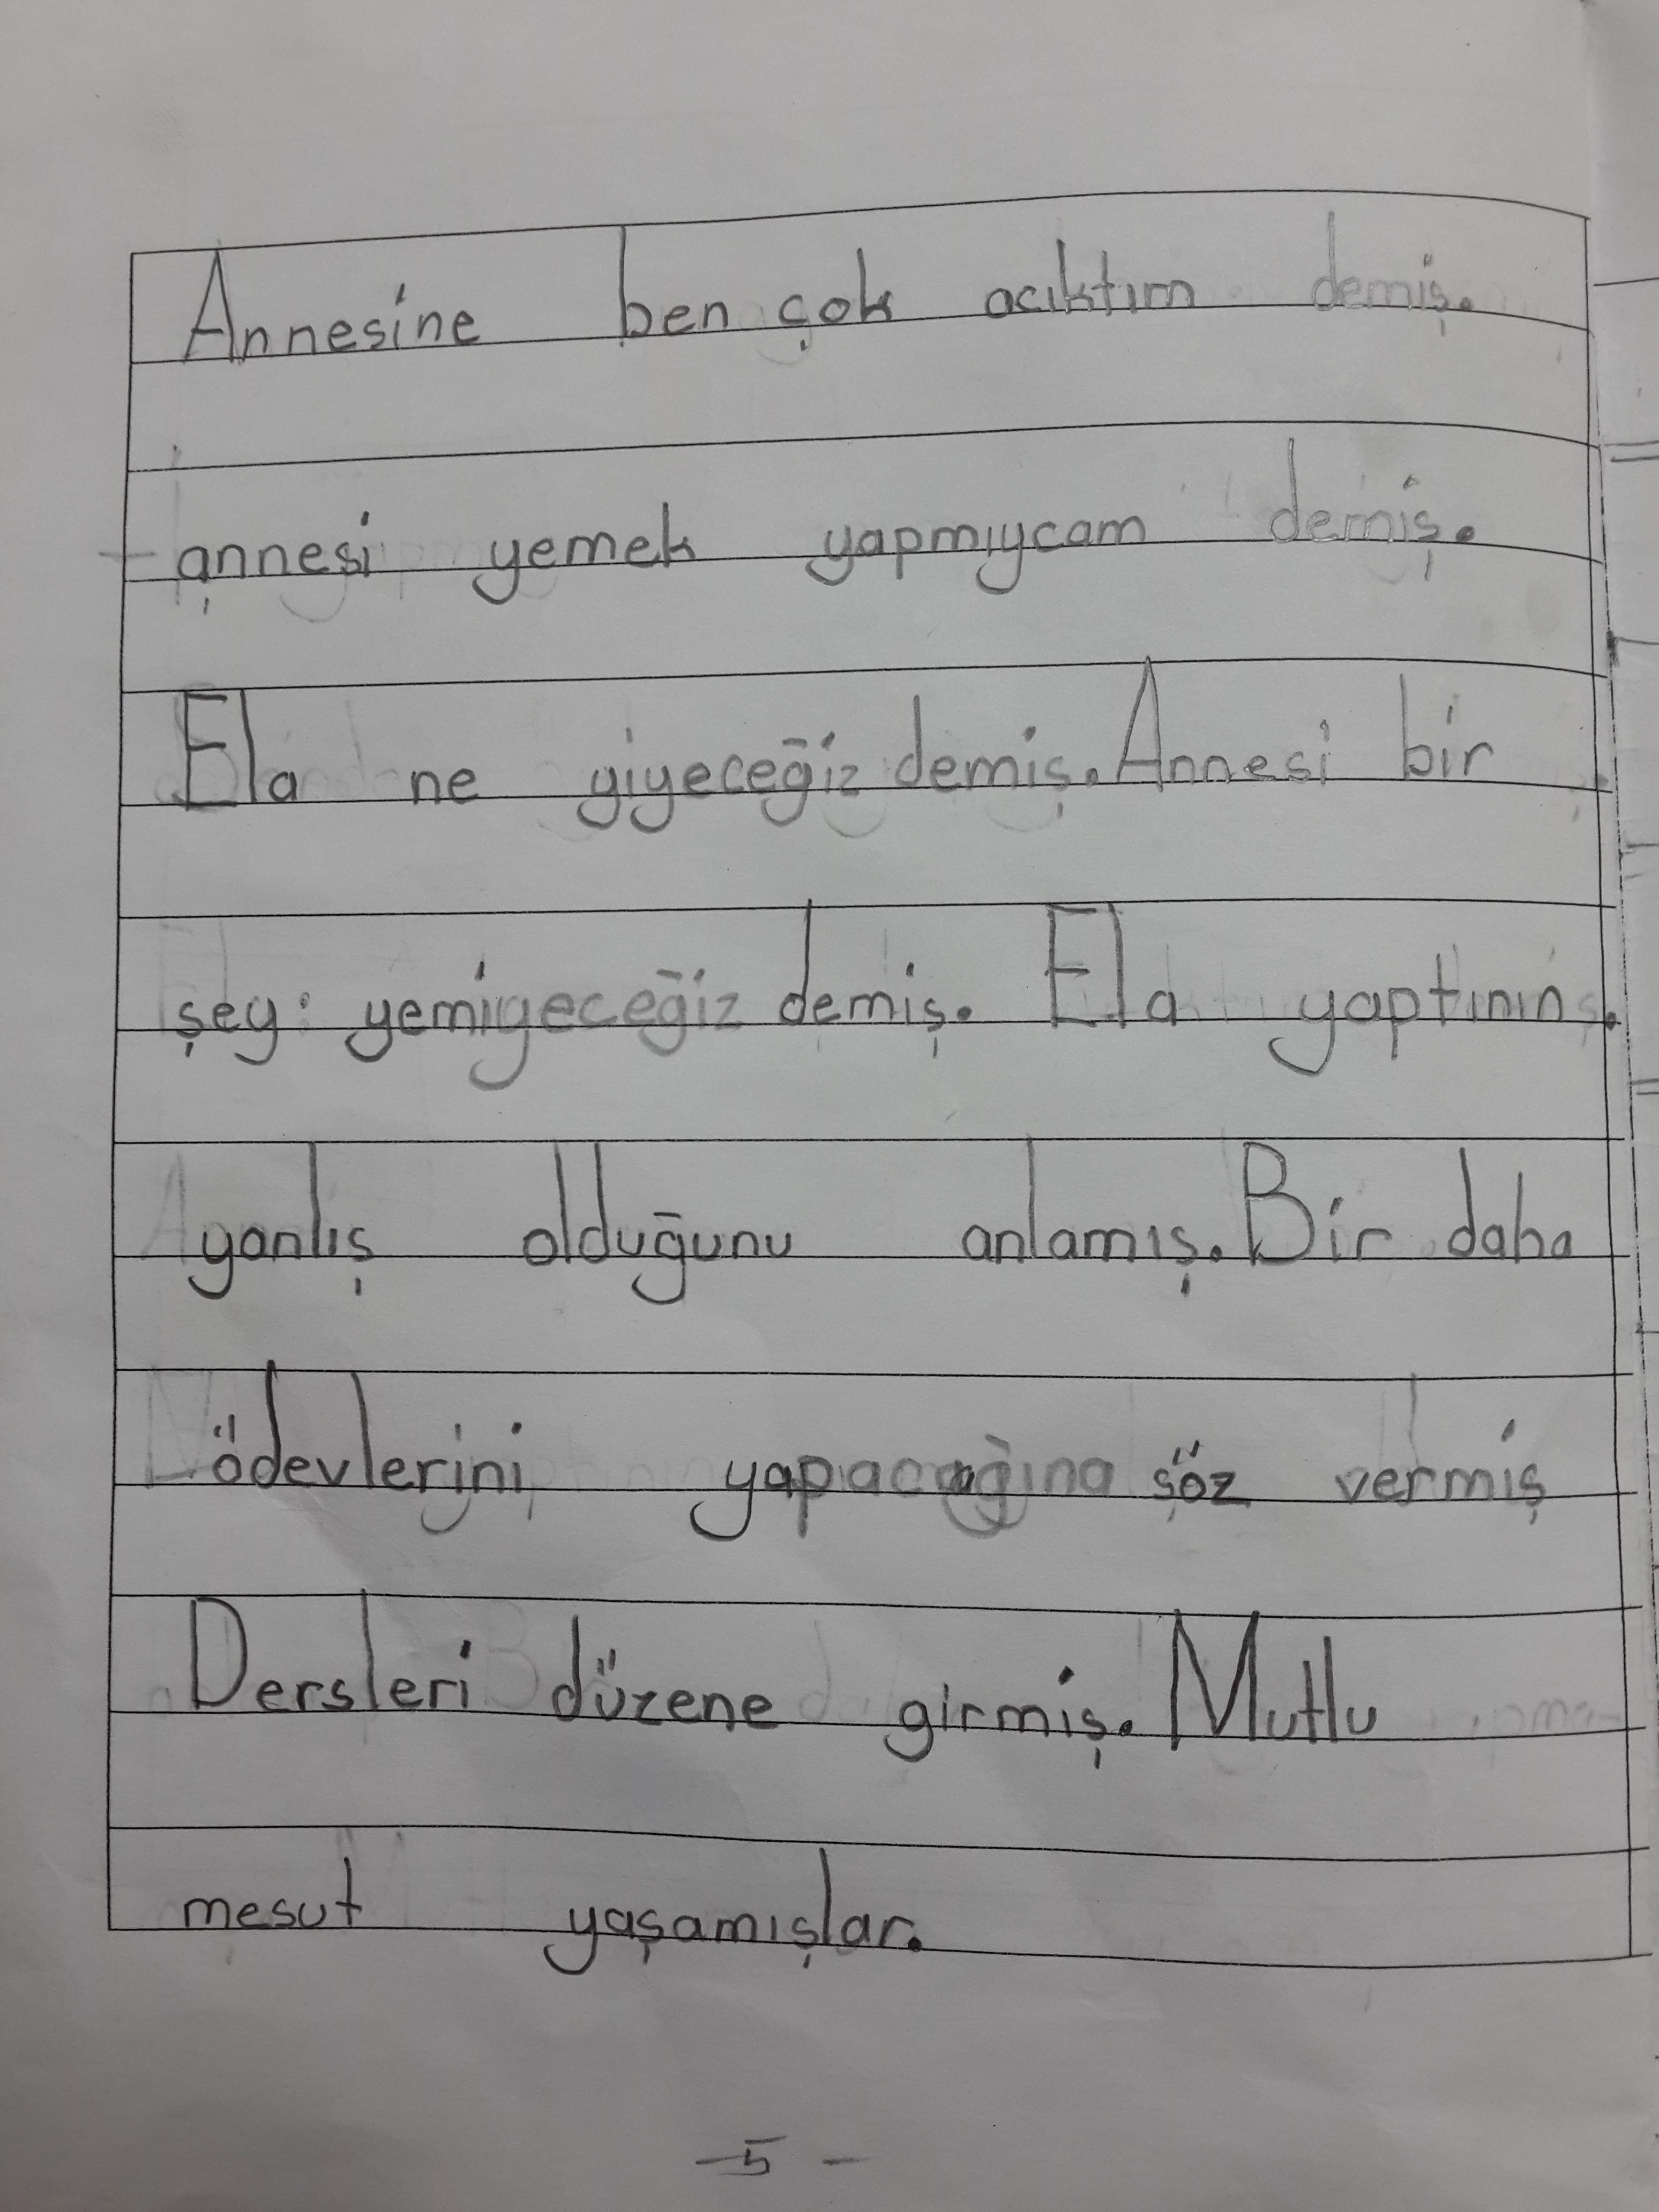 Annesine ben çok acıktım demiş.
annesi yemek yapmıycam demiş.
Ela ne yiyeceğiz demiş. Annesi bir
şey yemiyeceğiz demiş. Ela yaptının
yanlış olduğunu anlamış. Bir daha
ödevlerini yapacağına söz vermiş
Dersleri düzene girmiş. Mutlu
mesut yaşamışlar.
-5-